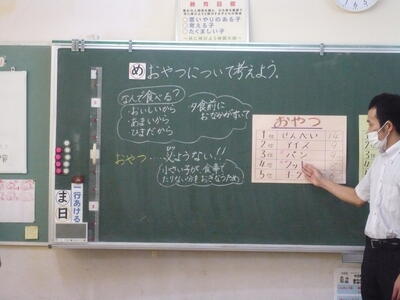 教育目標
思いやりのある子
考える子
たくましい子
め おやつについて考えよう。
なんで食べる?
・おいしいから
・あまいから
・ひまだから
夕食前に
おなかがすいて
おやつ・・・ひつようない!!
小さい子が、食事で
たりない分をおぎなうため
おやつ
1位 せんべい 14
2位 アイス 9
3位 パン
4位
5位
一行あける
ま
日